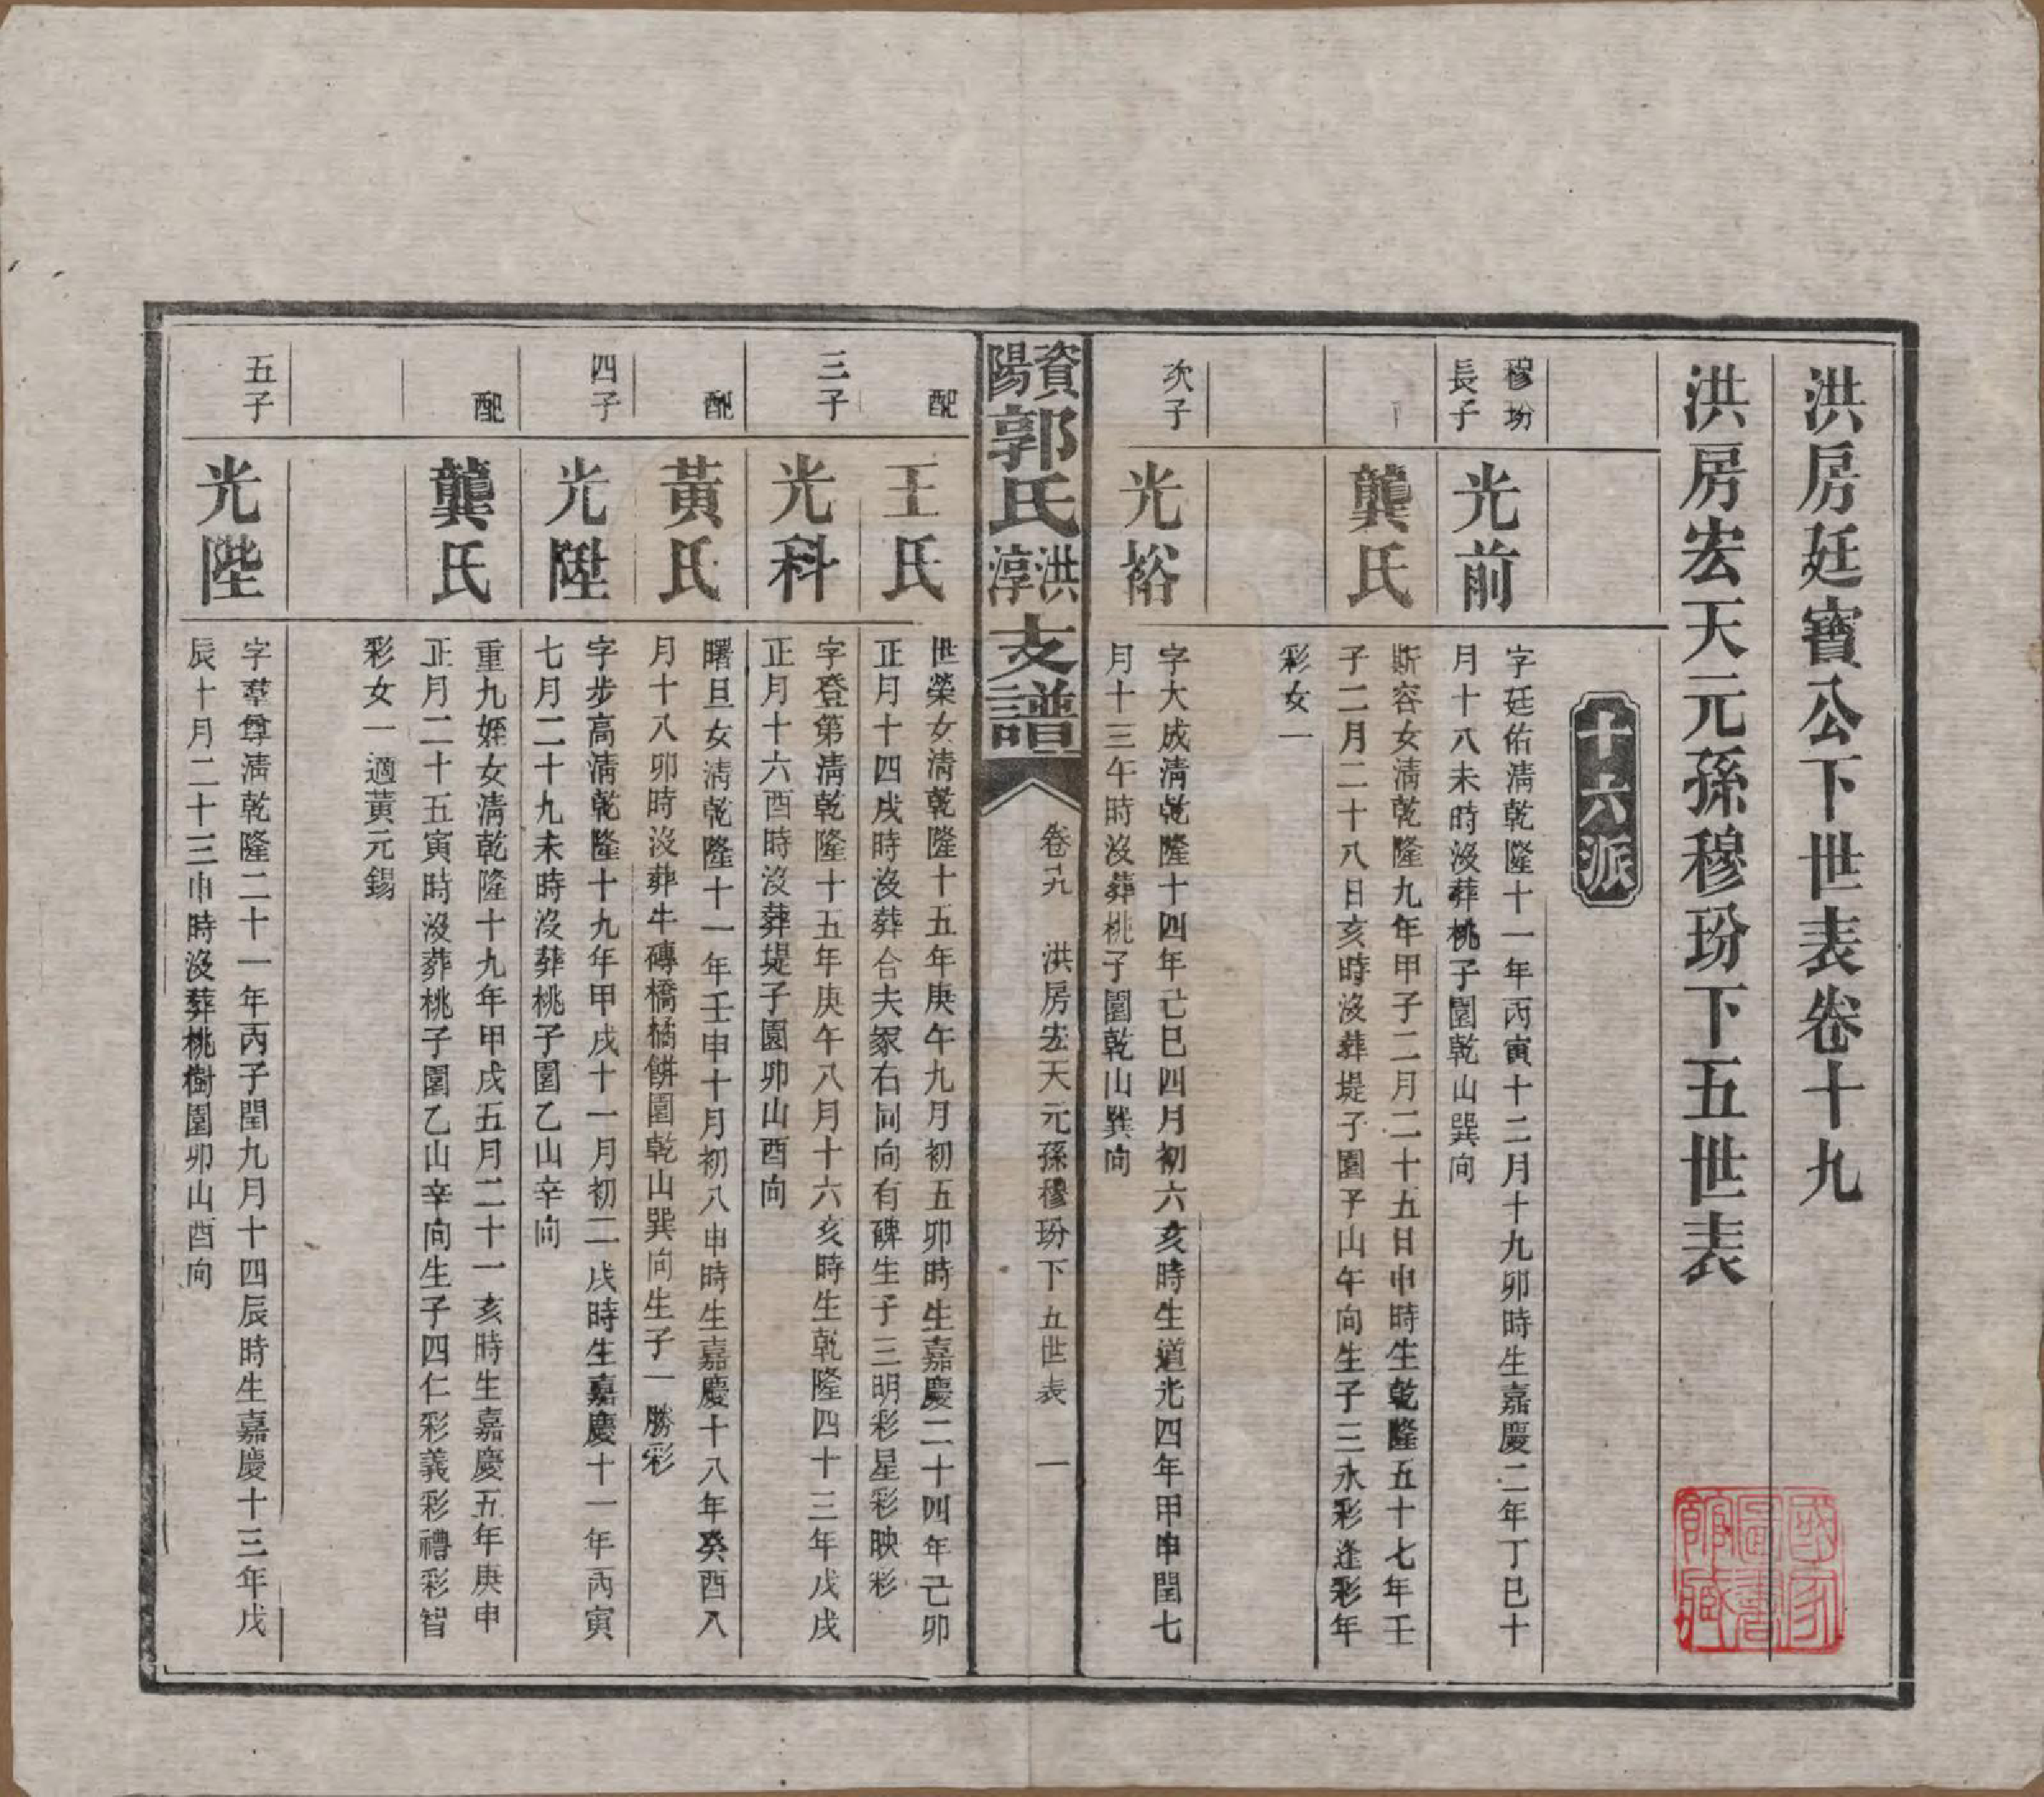 洪房廷寶公下世表卷十九
洪房宏天元孫穆玢下五世表
十六派
穆玢
長子
光前
字廷佑清乾隆十一年丙寅十二月十九卯時生嘉慶二年丁巳十
月十八未時沒葬桃子園乾山巽向
龔氏
斯容女清乾隆九年甲子二月二十五日申時生乾隆五十七年壬
子二月二十八日亥時沒葬堤子園子山午向生子三永彩逢彩年
彩女一
次子
光裕
字大成清乾隆十四年己巳四月初六亥時生道光四年甲申閏七
月十三午時沒葬桃子園乾山巽向
資陽郭氏洪淳支譜
卷十九 洪房宏天元孫穆玢下五世表 一
配
王氏
世榮女清乾隆十五年庚午九月初五卯時生嘉慶二十四年己卯
正月十四戌時沒葬合夫冢右同向有碑生子三明彩星彩映彩
三子
光科
字登第清乾隆十五年庚午八月十六亥時生乾隆四十三年戊戌
正月十六酉時沒葬堤子園卯山酉向
配
黃氏
曙旦女清乾隆十一年壬申十月初八申時生嘉慶十八年癸酉八
月十八卯時沒葬牛磚橋橘餅園乾山巽向生子一勝彩
四子
光陞
字步高清乾隆十九年甲戌十一月初二戌時生嘉慶十一年丙寅
七月二十九未時沒葬桃子園乙山辛向
配
龔氏
重九姪女清乾隆十九年甲戌五月二十一亥時生嘉慶五年庚申
正月二十五寅時沒葬桃子園乙山辛向生子四仁彩義彩禮彩智
彩女一適黃元錫
五子
光陛
字羣尊清乾隆二十一年丙子閏九月十四辰時生嘉慶十三年戊
辰十月二十三申時沒葬桃樹園卯山酉向
國家圖書館藏